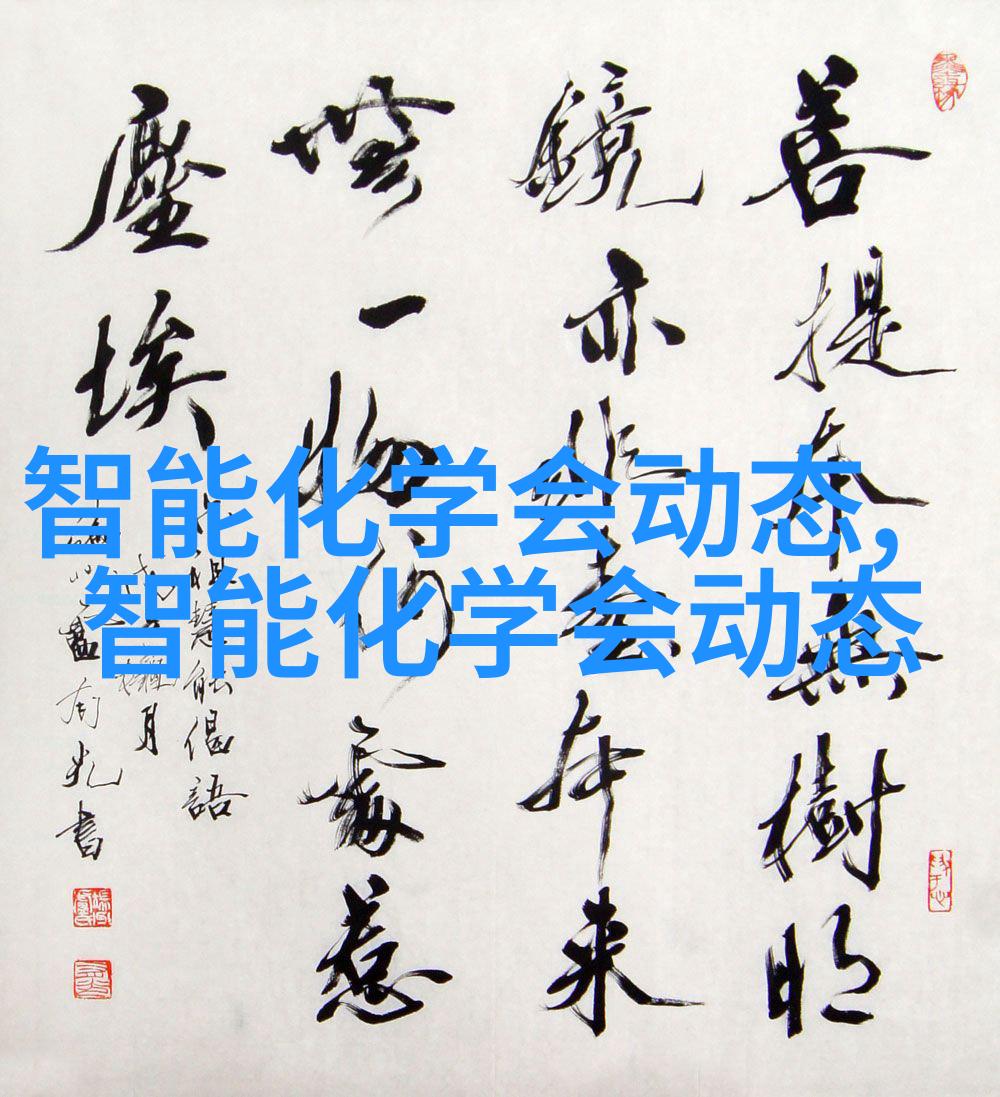 菩提本無樹明
鏡亦非臺本來
無一物何處惹
塵埃
六祖慧能偈語
月
光書
智能化学会动态,
智能化学会动态